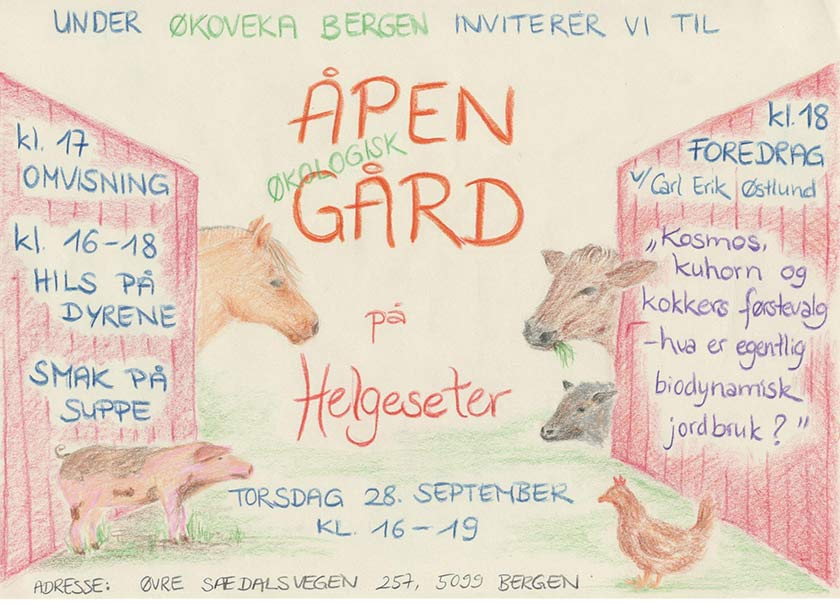 UNDER ØKOVEKA BERGEN INVITERER VI TIL
ÅPEN
ØKOLOGISK
GÅRD
på
Helgeseter
kl. 17
OMVISNING
kl. 16-18
HILS PÅ
DYRENE
SMAK PÅ
SUPPE
kl. 18
FOREDRAG
v/ Carl Erik Østlund
„Kosmos,
kuhorn og
kokkers førstevalg
-hva er egentlig
biodynamisk
jordbruk?"
TORSDAG 28. SEPTEMBER
KL. 16-19
ADRESSE: ØVRE SÆDALSVEGEN 257, 5099 BERGEN